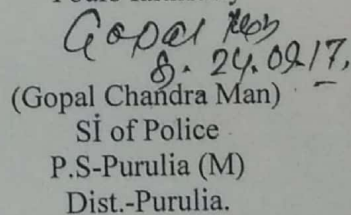 Gopal Man
24.09.17.
(Gopal Chandra Man)
Sİ of Police
P.S-Purulia (M)
Dist.-Purulia.